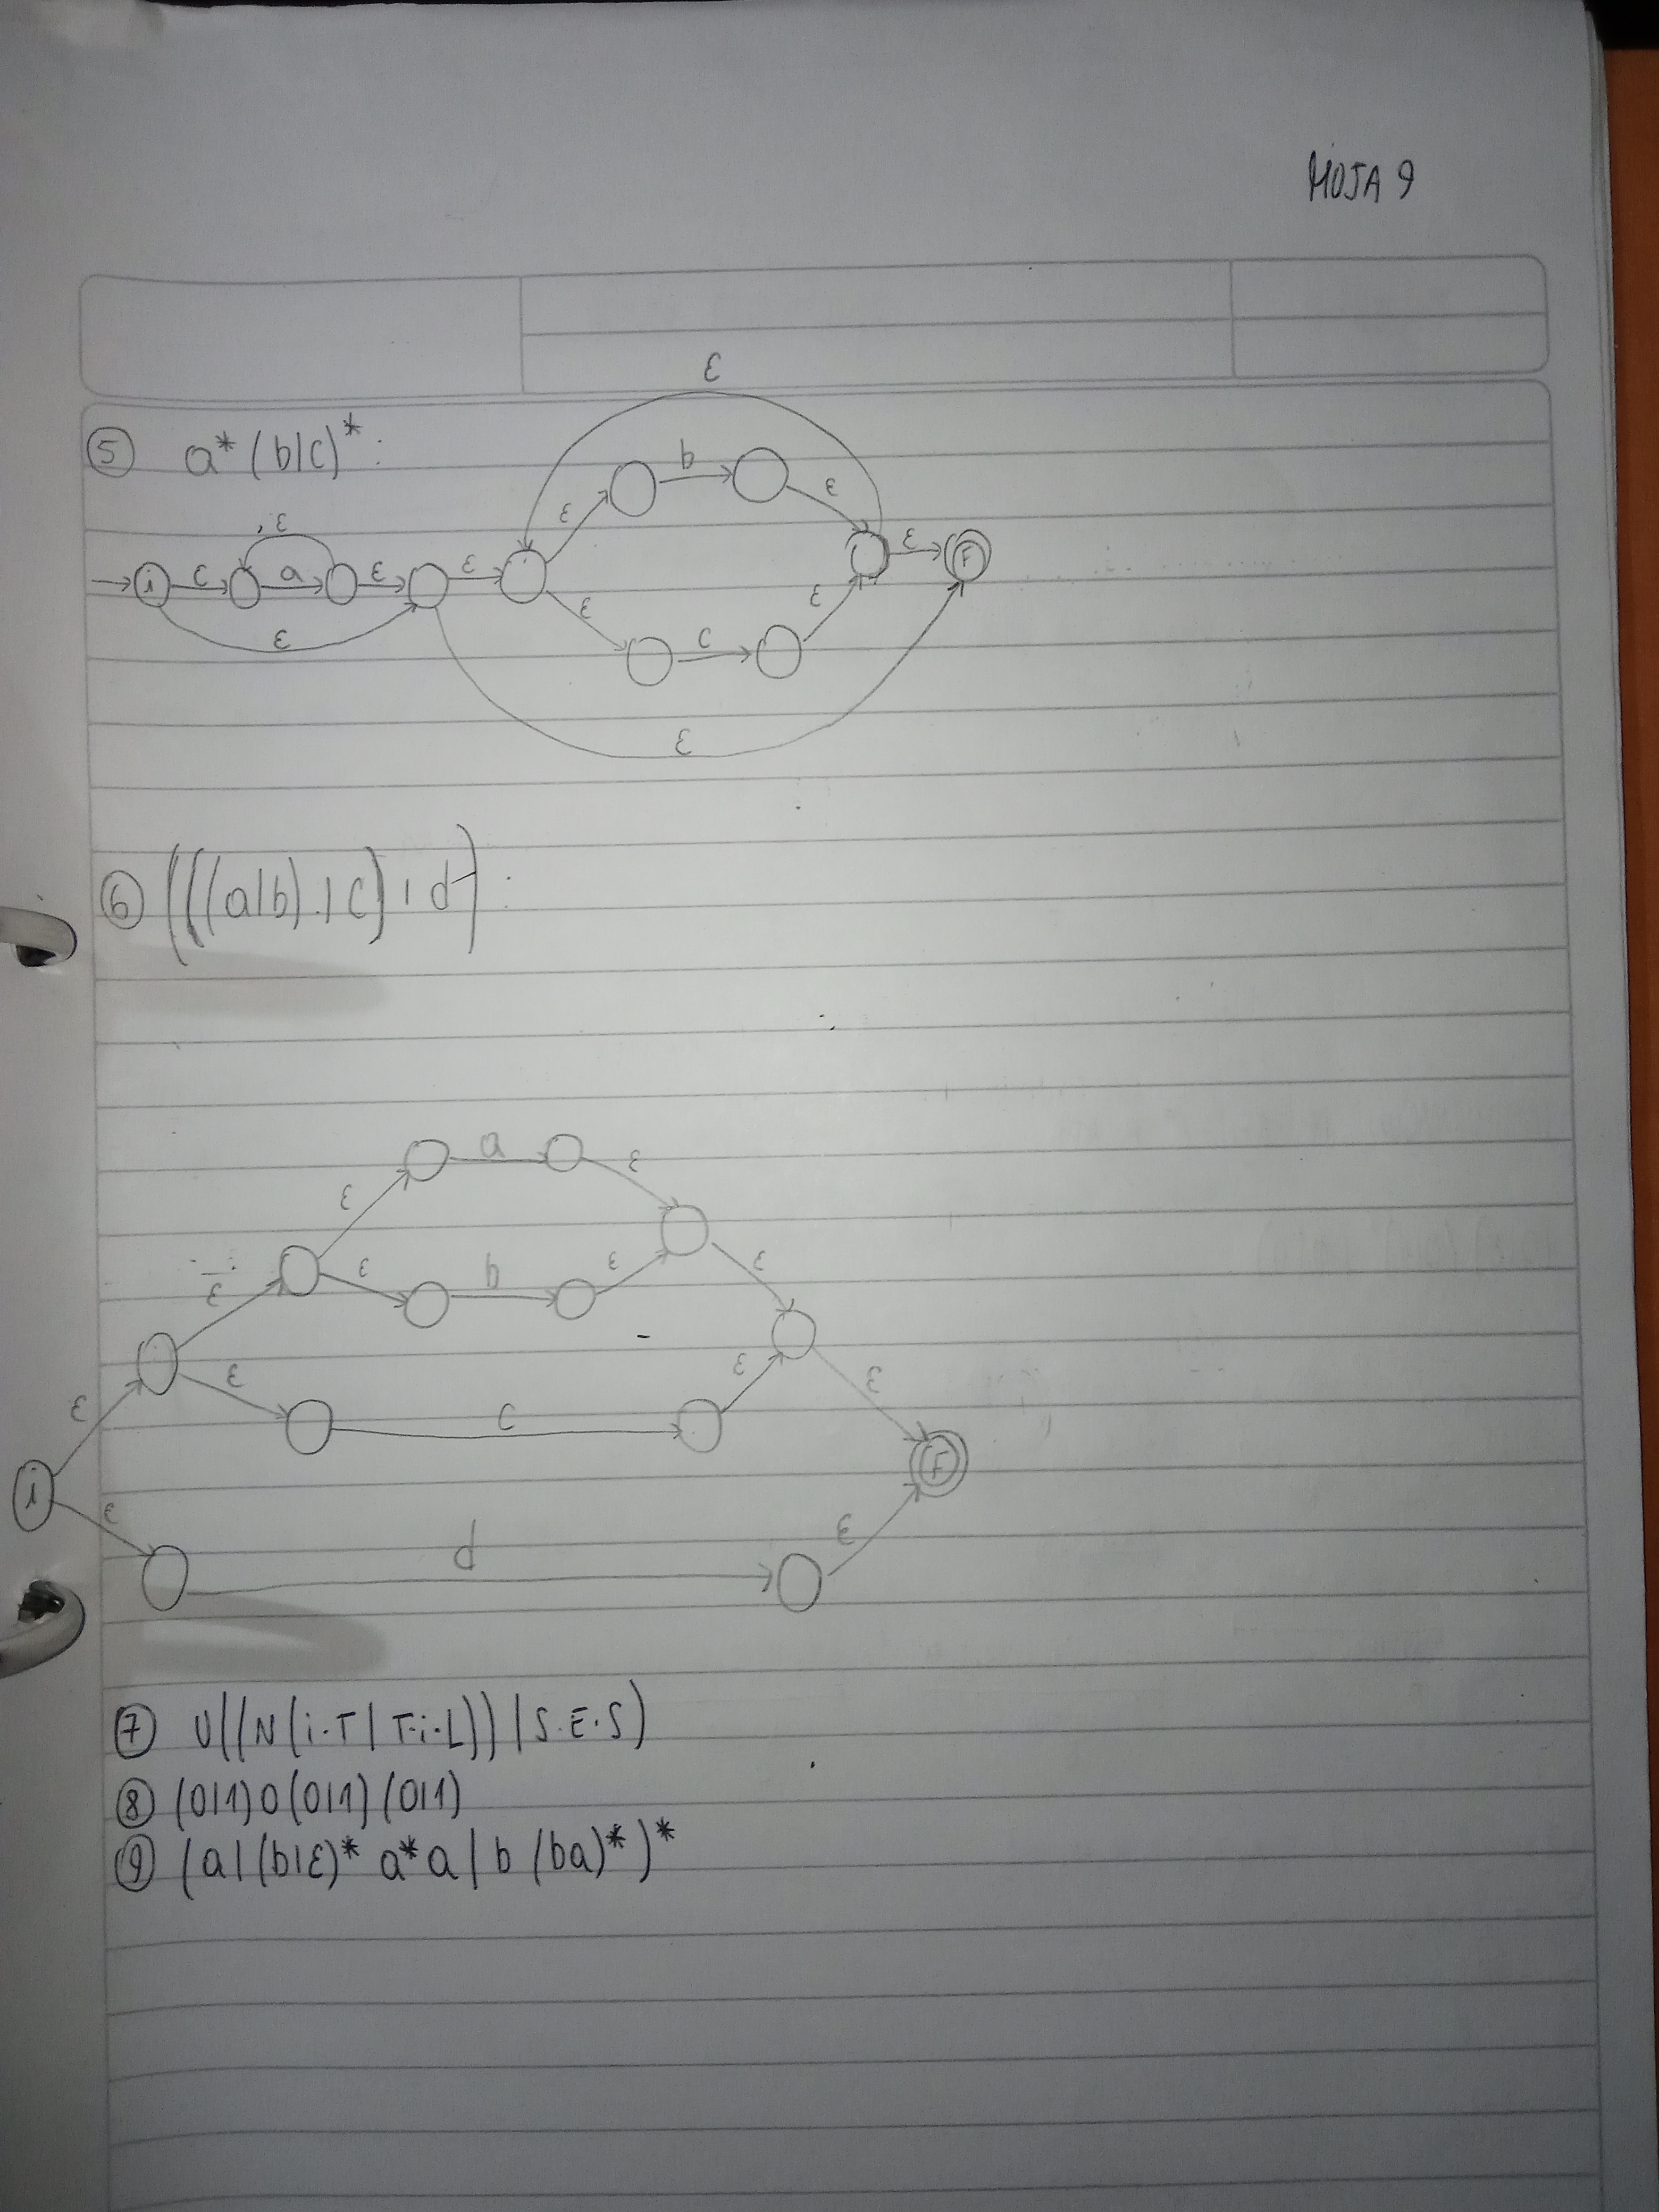 HOJA 9
⑤ a* (b|c)* :
ε
b
ε ε
ε
i ε a ε ε ε F
ε ε
ε c
ε
⑥ (((a|b).|c)|d) :
a
ε ε
ε b ε ε
ε
ε ε ε
c
ε F
i
ε d ε
⑦ U((N(i·T|T·i·L))|S·E·S)
⑧ (0|1)0(0|1)(0|1)
⑨ (a|(b|ε)* a*a|b(ba)*)*